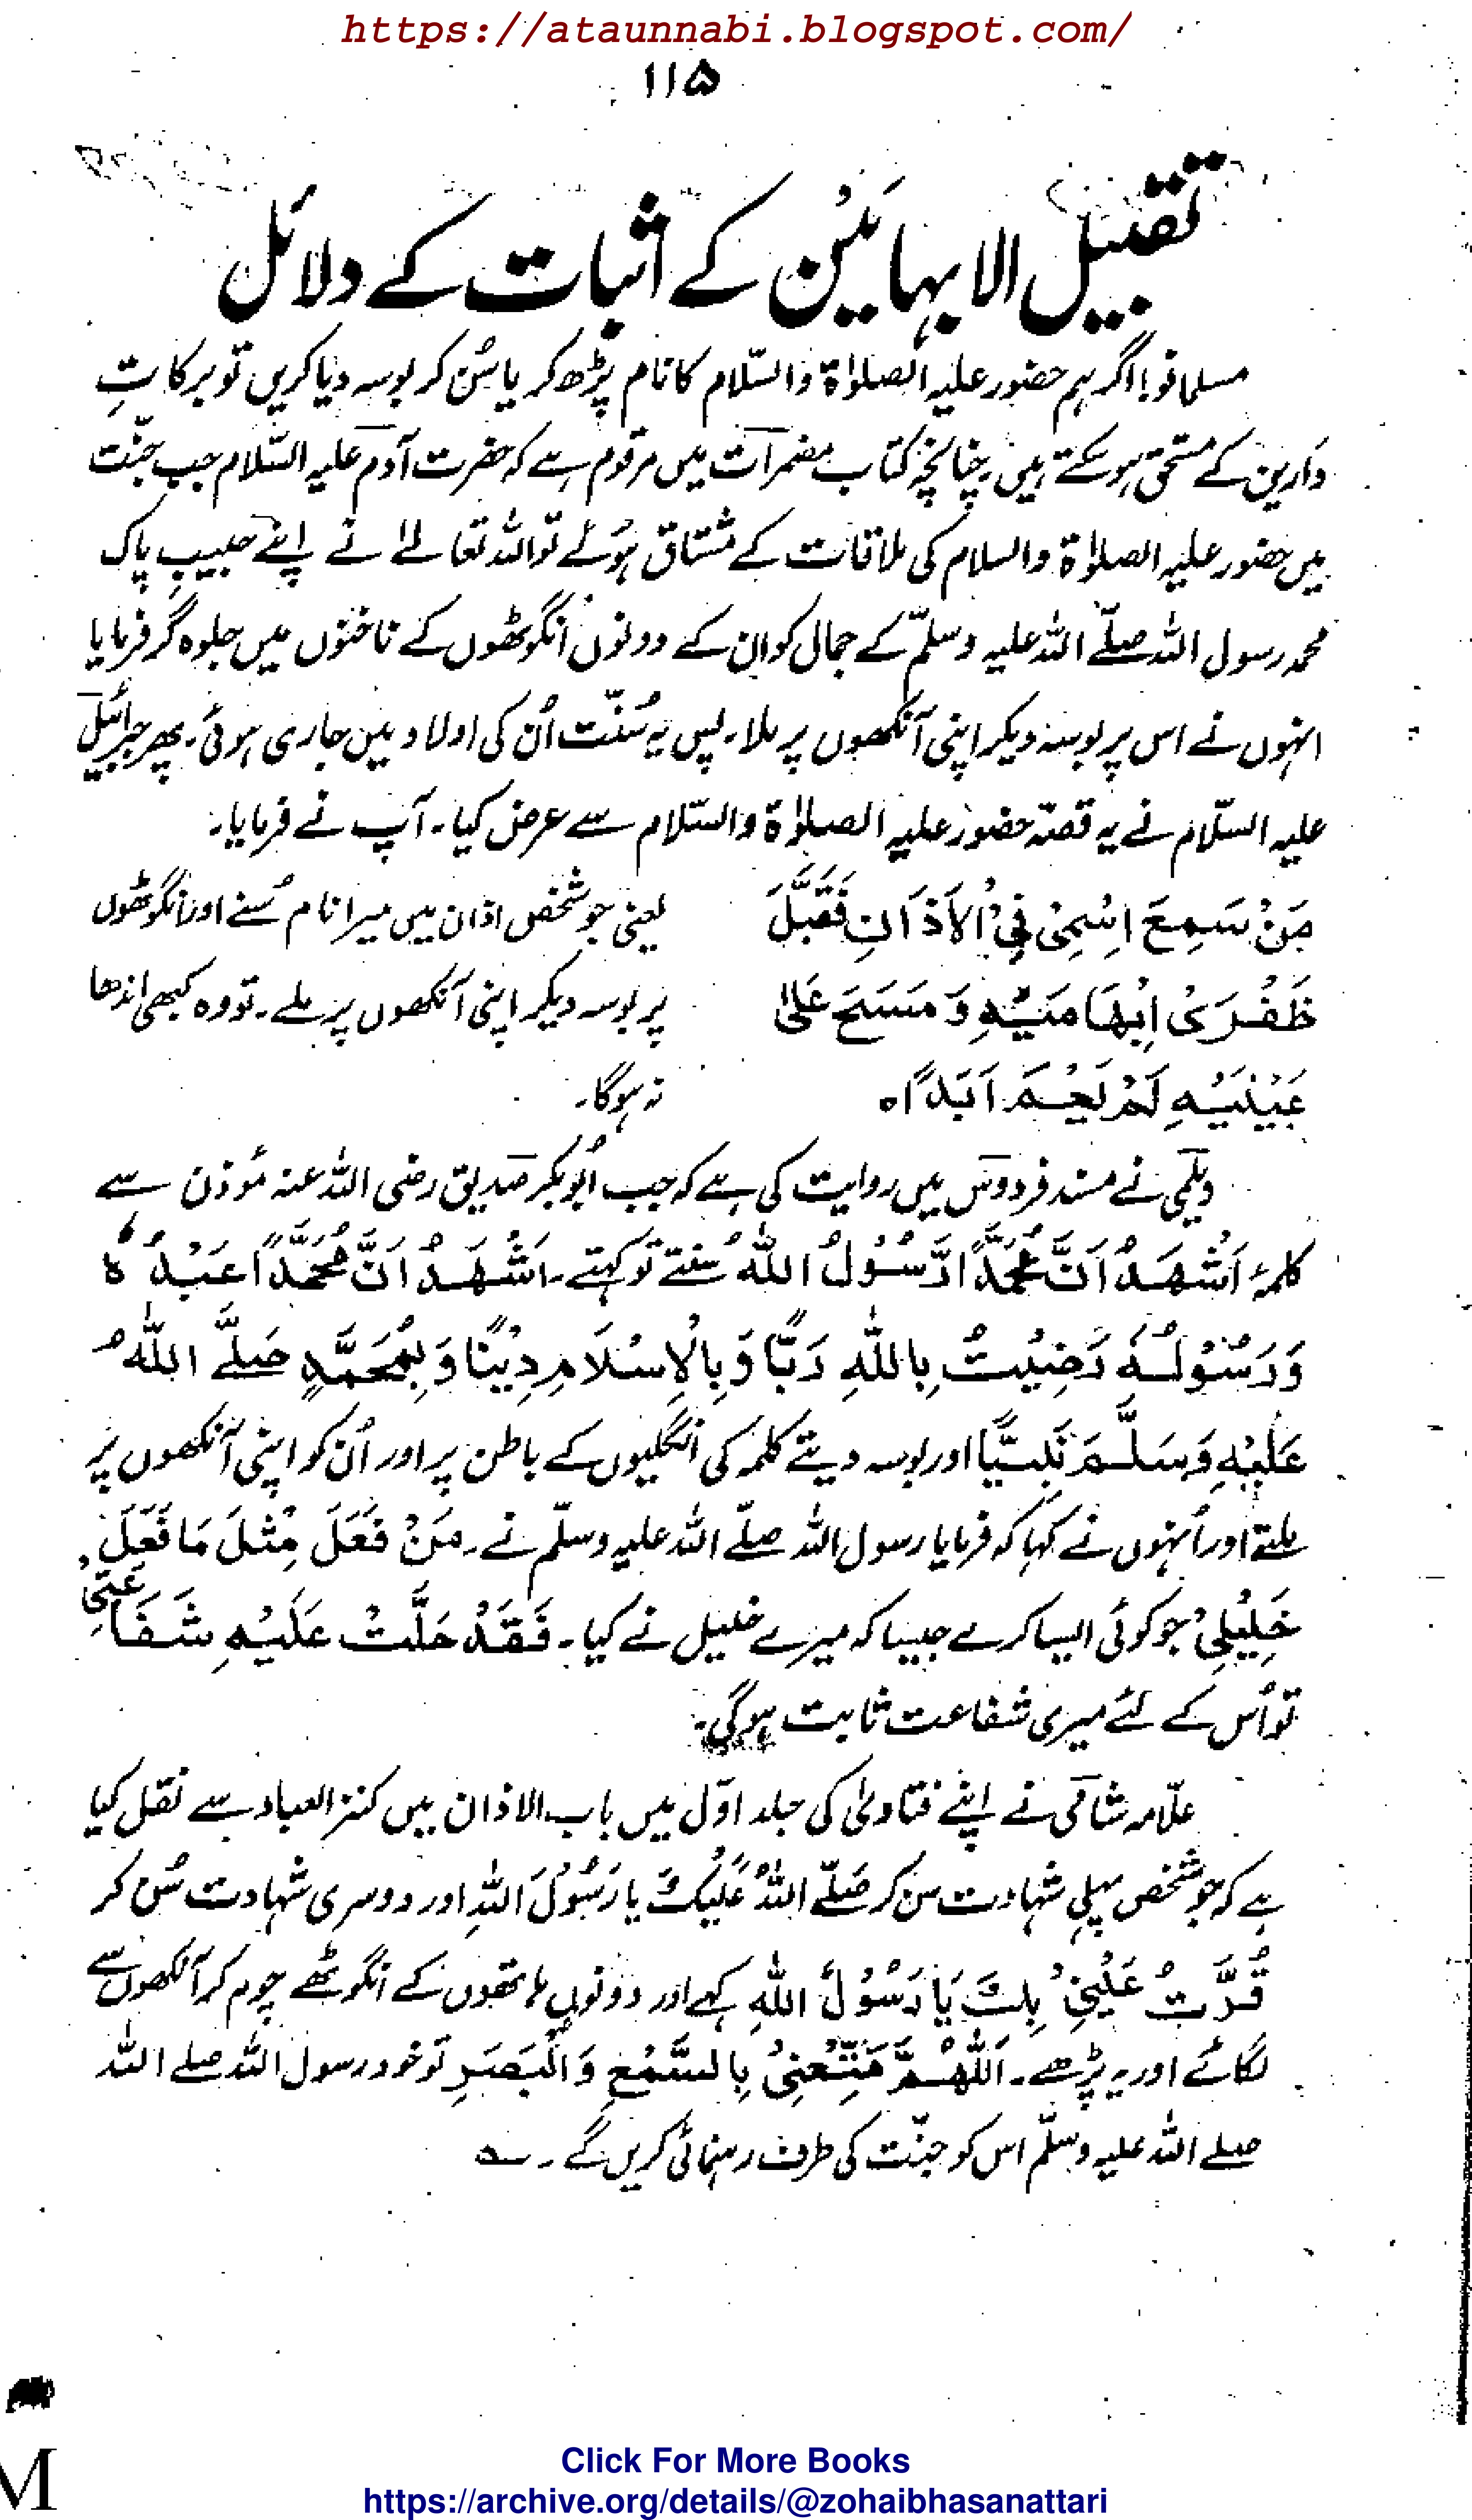 https://ataunnabi.blogspot.com/
۱۱۵
تقبیل الابہامَیْن کے اثبات کے دلائل
مسلمانو! اگر ہم حضور علیہ الصلوٰۃ والسّلام کا نام پڑھ کر یا سُن کر بوسہ دیا کریں تو برکاتِ
دارین کے مستحق ہو سکتے ہیں۔ چنانچہ کتاب مضمرات میں مرقوم ہے کہ حضرت آدم علیہ السّلام جب جنّت
میں حضور علیہ الصلوٰۃ والسلام کی ملاقات کے مشتاق ہوئے تو اللہ تعالےٰ نے اپنے حبیبِ پاک
محمد رسول اللہ صلّے اللہ علیہ وسلّم کے جمال کو ان کے دونوں انگوٹھوں کے ناخنوں میں جلوہ گر فرمایا
انہوں نے اس پر بوسہ دیکر اپنی آنکھوں پر ملا۔ پس یہ سُنّت اُن کی اولاد میں جاری ہوئی۔ پھر جبرائیل
علیہ السّلام نے یہ قصّہ حضور علیہ الصلوٰۃ والسّلام سے عرض کیا۔ آپ نے فرمایا۔
مَنْ سَمِعَ اِسْمِیْ فِی الْاَذَانِ فَقَبَّلَ یعنی جو شخص اذان میں میرا نام سُنے اور انگوٹھوں
ظَفُرَیْ اِبْهَامَیْهِ وَمَسَحَ عَلیٰ پر بوسہ دیکر اپنی آنکھوں پر ملے۔ تو وہ کبھی اندھا
عَیْنَیْهِ لَمْ یَعْمَ اَبَدًا ہ نہ ہوگا۔
دیلمی نے مسند فردوس میں روایت کی ہے کہ جب ابُوبکر صدیق رضی اللہ عنہ مؤذن سے
کلمۂ اَشْهَدُ اَنَّ مُحَمَّدًا رَّسُوْلُ اللّٰهُ سُنتے تو کہتے۔ اَشْهَدُ اَنَّ مُحَمَّدًا عَبْدُہٗ
وَرَسُوْلُهٗ رَضِیْتُ بِاللّٰهِ رَبًّا وَّ بِالْاِسْلَامِ دِیْنًا وَ بِمُحَمَّدٍ صَلَّے اللّٰهُ
عَلَیْهِ وَسَلَّمَ نَبِیًّا اور بوسہ دیتے کلمہ کی انگلیوں کے باطن پر اور اُن کو اپنی آنکھوں پر
ملتے اور اُنہوں نے کہا کہ فرمایا رسول اللہ صلّے اللہ علیہ وسلّم نے۔ مَنْ فَعَلَ مِثْلَ مَا فَعَلَ
خَلِیْلِیْ جو کوئی ایسا کرے جیسا کہ میرے خلیل نے کیا۔ فَقَدْ حَلَّتْ عَلَیْهِ شَفَاعَتِیْ
تو اُس کے لئے میری شفاعت ثابت ہوگی۔
علّامہ شامی نے اپنے فتاویٰ کی جلد اوّل میں باب الاذان میں کنز العباد سے نقل کیا
ہے کہ جو شخص پہلی شہادت سن کر صَلّے اللّٰهُ عَلَیْکَ یا رَسُوْلَ اللّٰهِ اور دوسری شہادت سُن کر
قُرَّتُ عَیْنِیْ بِكَ یَا رَسُوْلَ اللّٰهِ کہے اور دونوں ہاتھوں کے انگوٹھے چوم کر آنکھوں سے
لگائے اور یہ پڑھے۔ اَللّٰهُمَّ مَتِّعْنِیْ بِالسَّمْعِ وَالْبَصَرِ تو خود رسول اللہ صلے اللہ
صلے اللہ علیہ وسلّم اس کو جنّت کی طرف رہنمائی کریں گے۔
M
Click For More Books
https://archive.org/details/@zohaibhasanattari